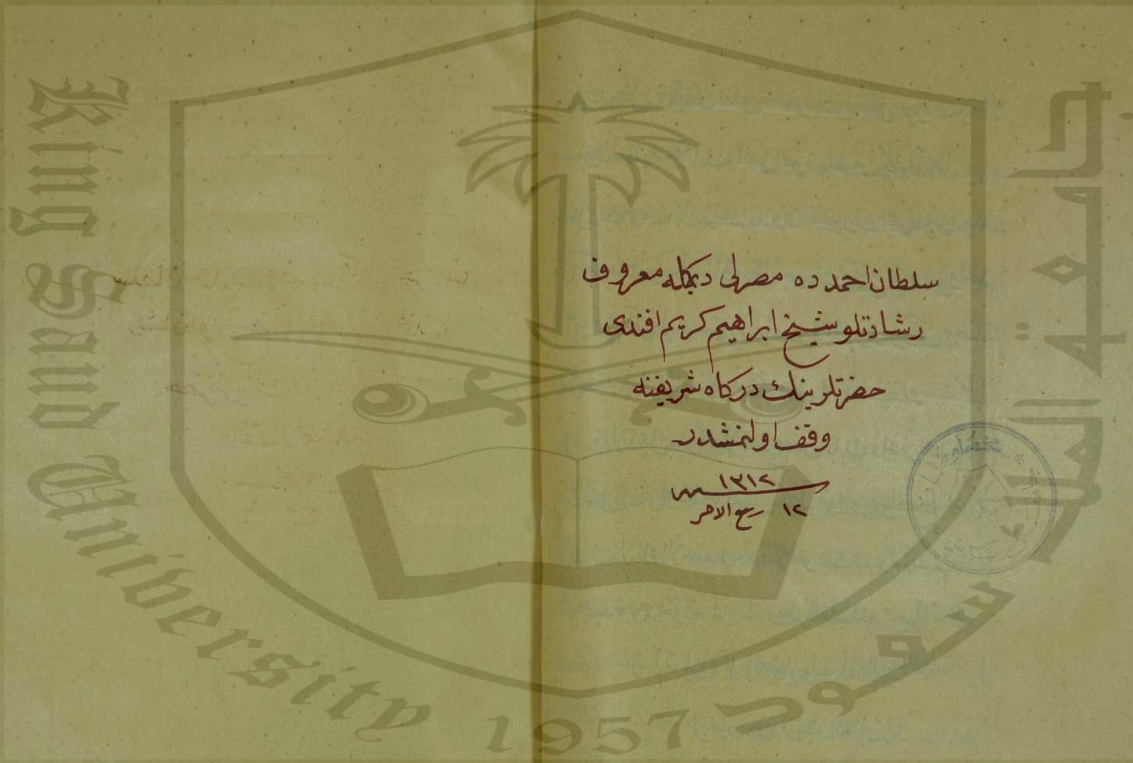 سلطان احمدده مصرلى ديمكله معروف
رشادتلو شيخ ابراهيم كريم افندى
حضرتلرينك دركاه شريفنه
وقف اولنمشدر
سنه ١٣١٢
١٢ ربيع الاخر
King Saud University 1957
جامعة الملك سعود